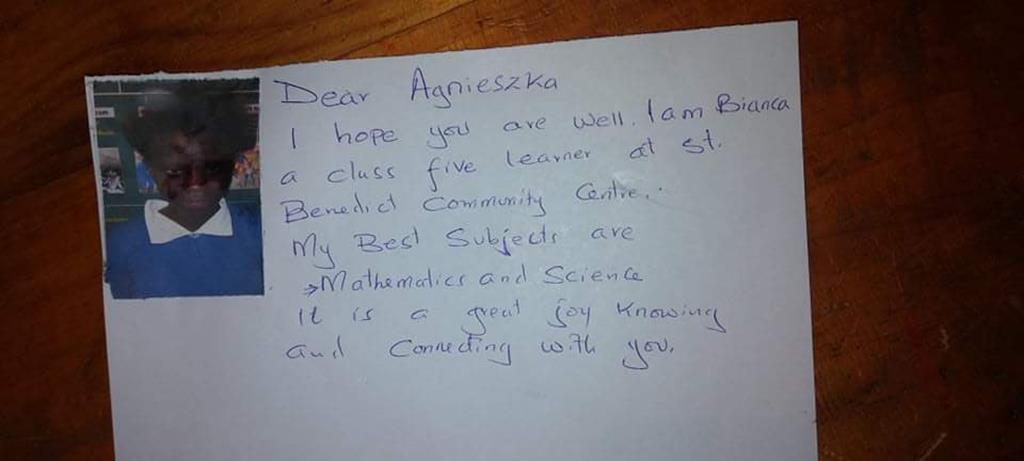 Dear Agnieszka
I hope you are well. I am Bianca
a class five learner at St.
Benedict Community Centre.
My Best Subjects are
→Mathematics and Science
It is a great joy knowing
and connecting with you.